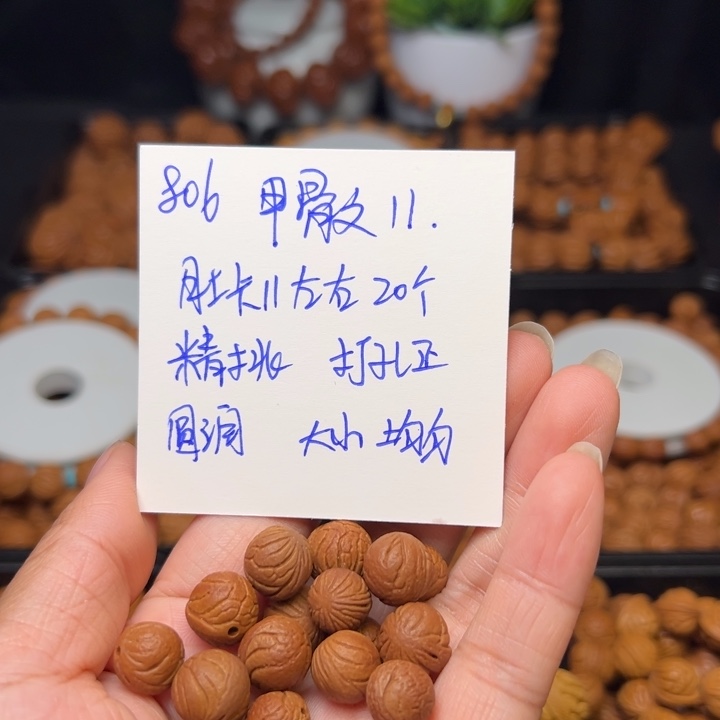 806 甲骨文 11.
肚卡11左右 20个
精挑 打孔正
圆润 大小均匀